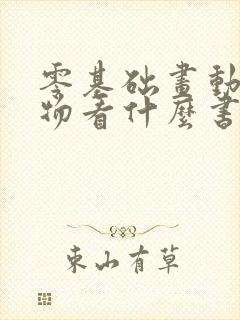 零基础畫動
物看什麼書
東山有草